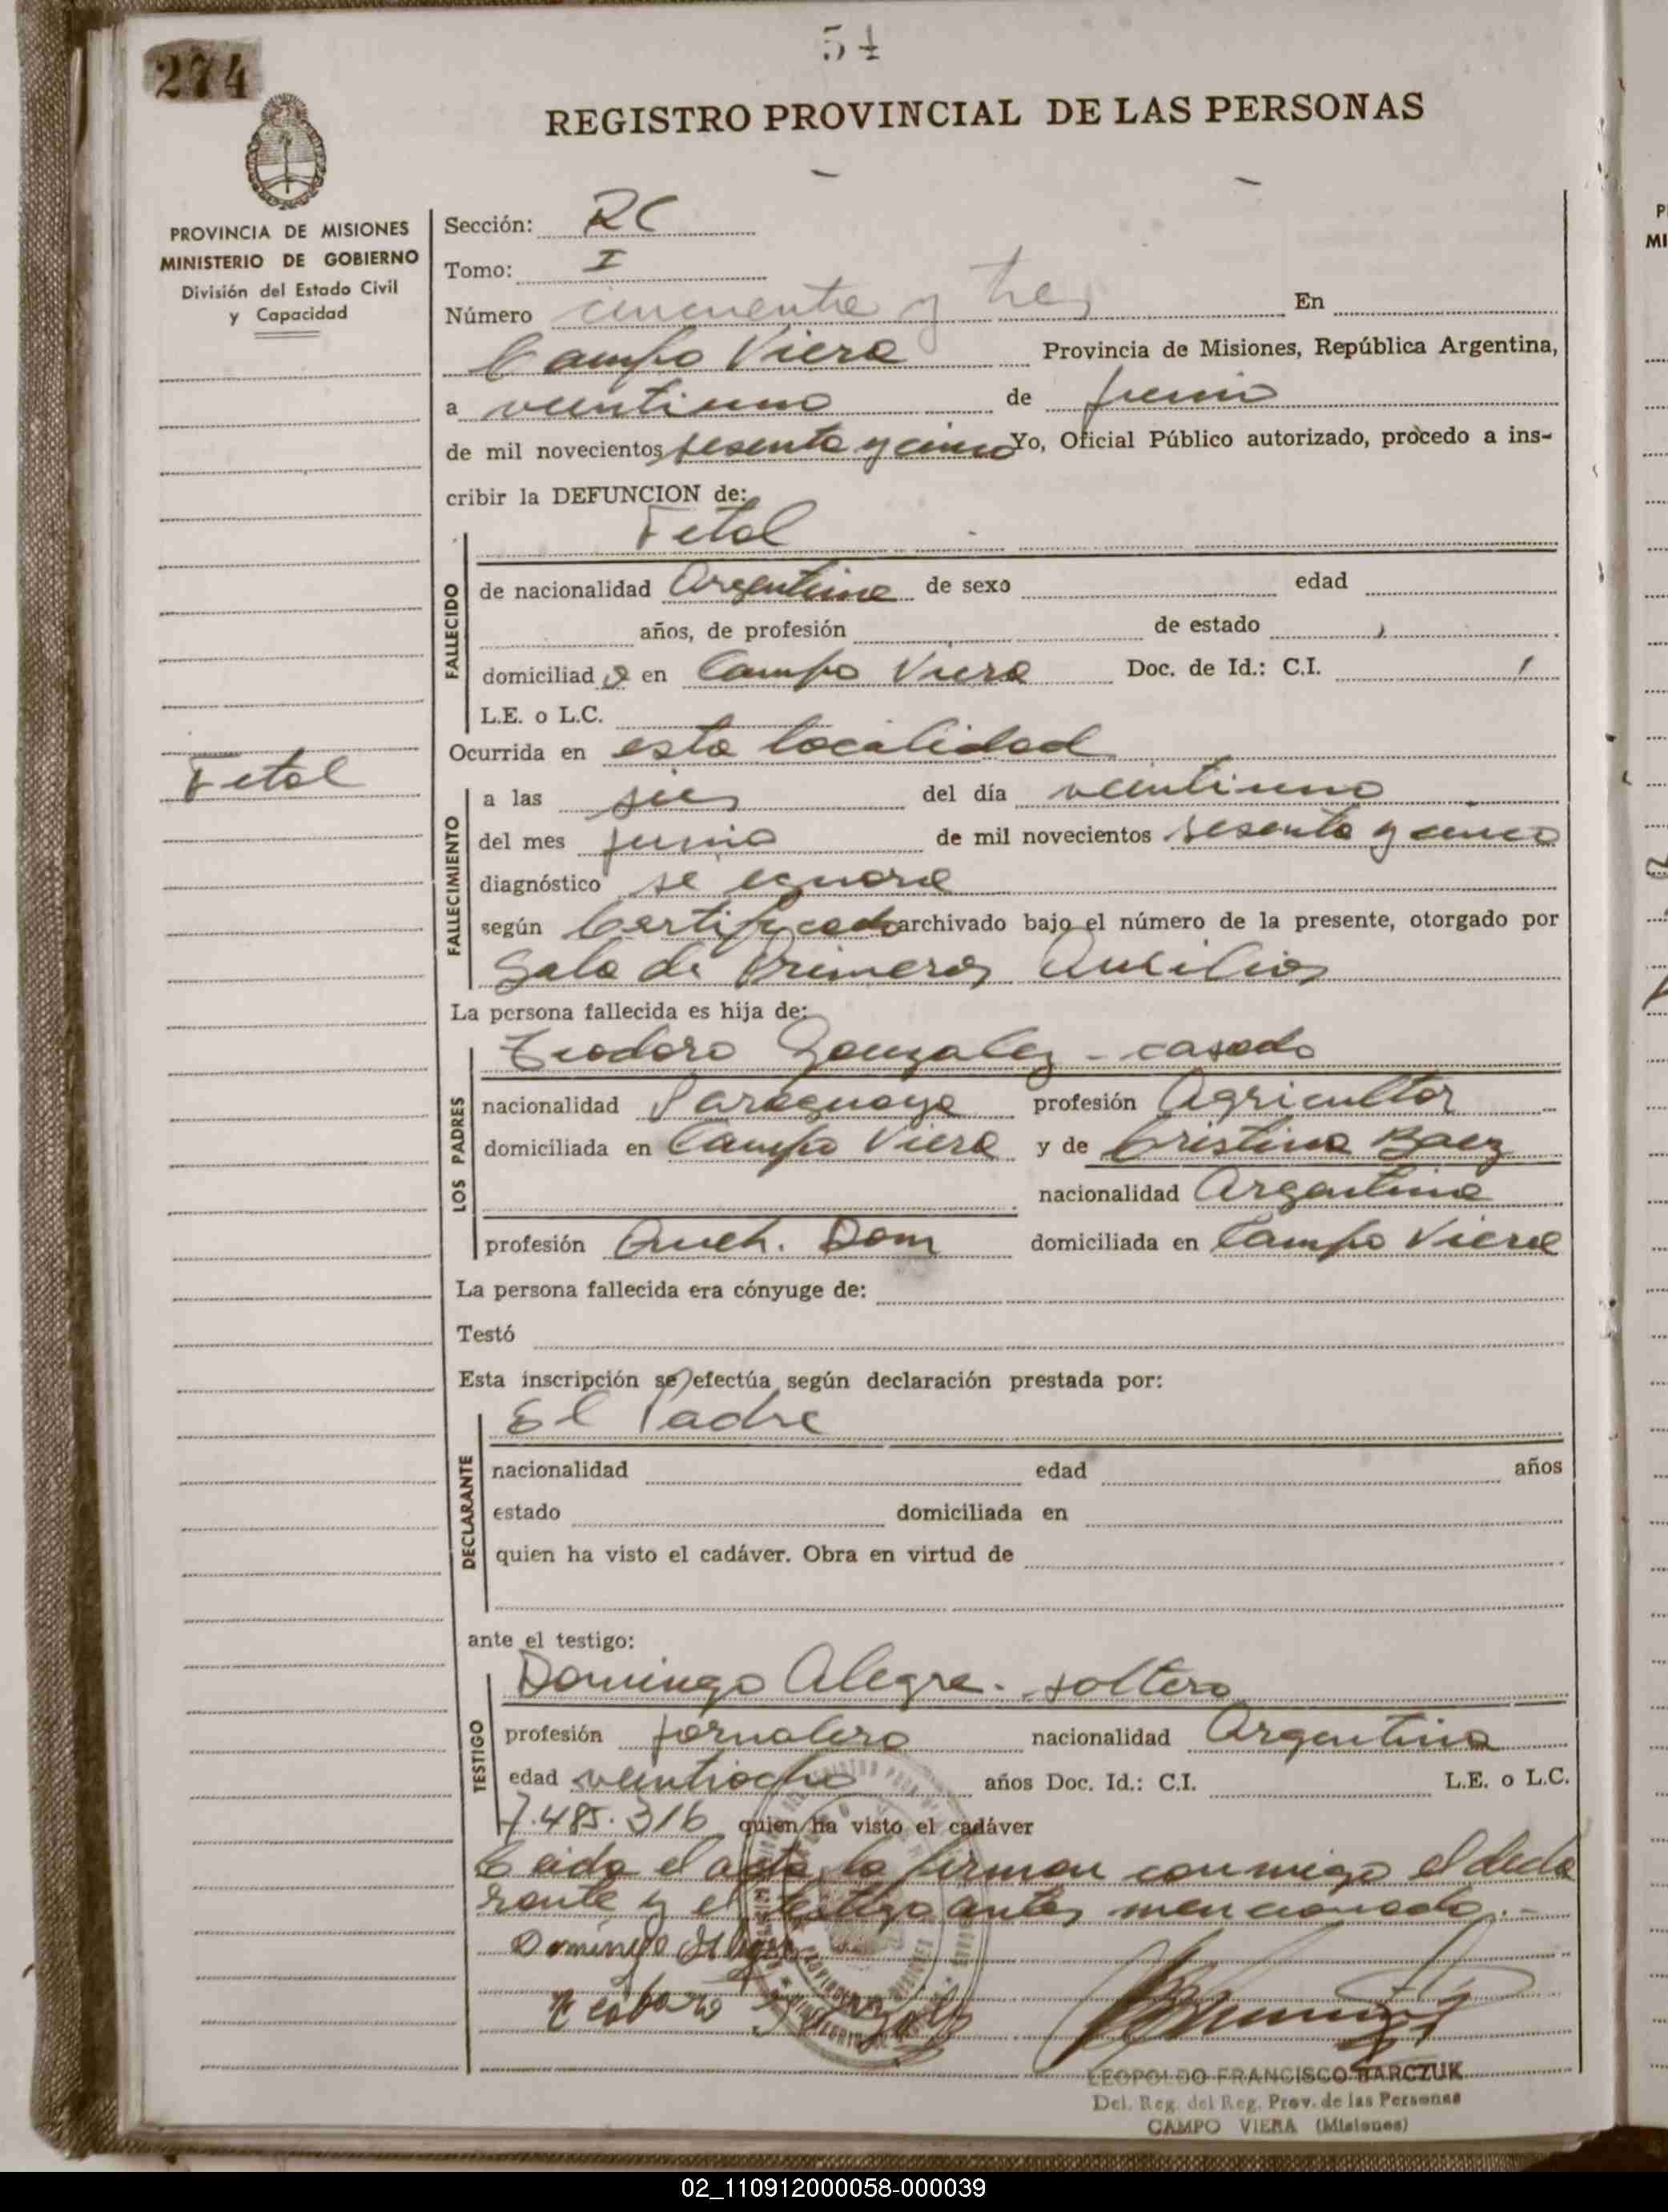 274
54
REGISTRO PROVINCIAL DE LAS PERSONAS
PROVINCIA DE MISIONES
MINISTERIO DE GOBIERNO
División del Estado Civil
y Capacidad
Sección: RC
Tomo: I
Número cincuenta y tres En
Campo Viera Provincia de Misiones, República Argentina,
a veintiuno de junio
de mil novecientos sesenta y cinco Yo, Oficial Público autorizado, procedo a ins-
cribir la DEFUNCION de:
Fetal
FALLECIDO
de nacionalidad Argentina de sexo edad
años, de profesión de estado
domiciliad a en Campo Viera Doc. de Id.: C.I.
L.E. o L.C.
Ocurrida en esta localidad
Fetal
FALLECIMIENTO
a las seis del día veintiuno
del mes junio de mil novecientos sesenta y cinco
diagnóstico se ignora
según Certificado archivado bajo el número de la presente, otorgado por
Sala de Primeros Auxilios
La persona fallecida es hija de:
LOS PADRES
Teodoro Gonzalez - casado
nacionalidad Paraguaya profesión Agricultor
domiciliada en Campo Viera y de Cristina Baez
nacionalidad Argentina
profesión Queh. Dom domiciliada en Campo Viera
La persona fallecida era cónyuge de:
Testó
Esta inscripción se efectúa según declaración prestada por:
DECLARANTE
El Padre
nacionalidad edad años
estado domiciliada en
quien ha visto el cadáver. Obra en virtud de
ante el testigo:
TESTIGO
Domingo Alegre - soltero
profesión jornalero nacionalidad Argentina
edad veintiocho años Doc. Id.: C.I. L.E. o L.C.
7.485.316 quien ha visto el cadáver
Leida el acta la firman conmigo el decla
rante y el testigo antes mencionado.-
Domingo Alegre
LEOPOLDO FRANCISCO HARCZUK
Del. Reg. del Reg. Prov. de las Personas
CAMPO VIERA (Misiones)
02_110912000058-000039